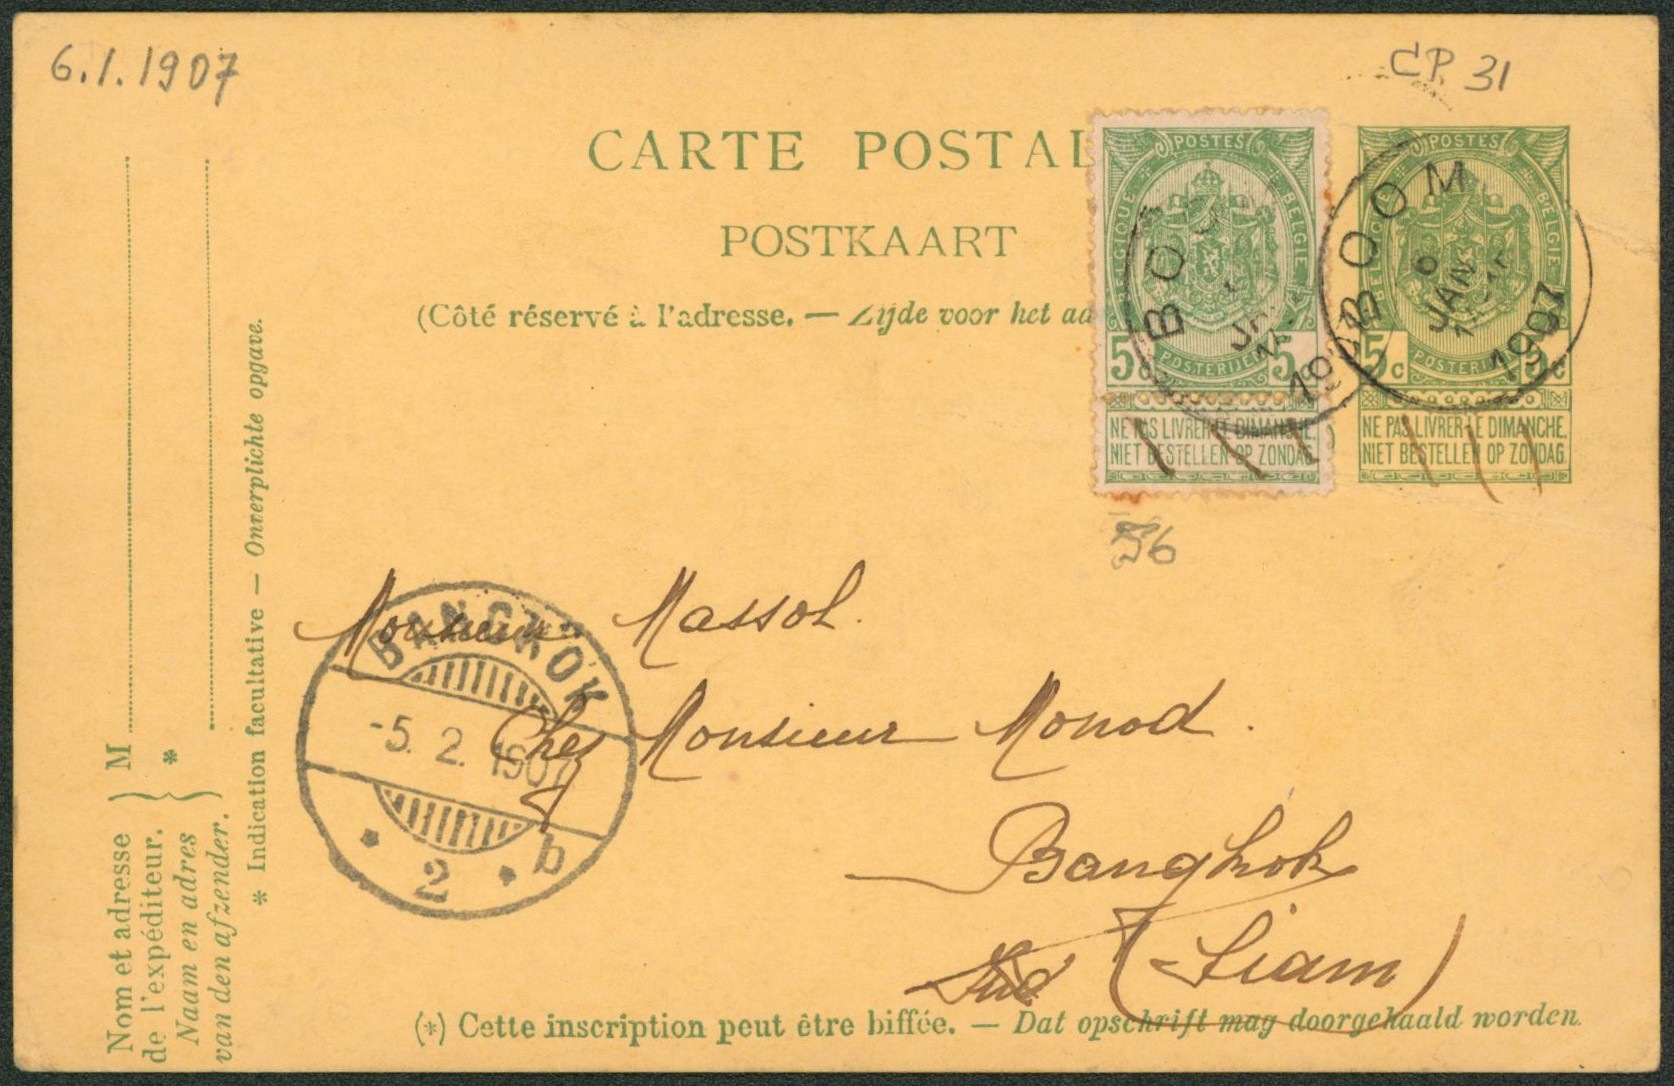 6.1.1907
CP 31
CARTE POSTAL
POSTKAART
(Côté réservé à l'adresse. — Zijde voor het ad
POSTES
BELGIQUE
BELGIE
5c 5c
POSTERIJEN
NE PAS LIVRER LE DIMANCHE.
NIET BESTELLEN OP ZONDAG
BOOM
JAN
POSTES
BELGIQUE
BELGIE
5c 5c
POSTERIJEN
NE PAS LIVRER LE DIMANCHE.
NIET BESTELLEN OP ZONDAG
BOOM
6
JAN
1907
56
Monsieur Massol.
Chez Monsieur Monod.
Bangkok
(Siam)
BANGKOK
-5. 2. 1907
* 2 * b
M
*
Nom et adresse
de l'expéditeur.
Naam en adres
van den afzender.
* Indication facultative — Onverplichte opgave.
(*) Cette inscription peut être biffée. — Dat opschrift mag doorgehaald worden.